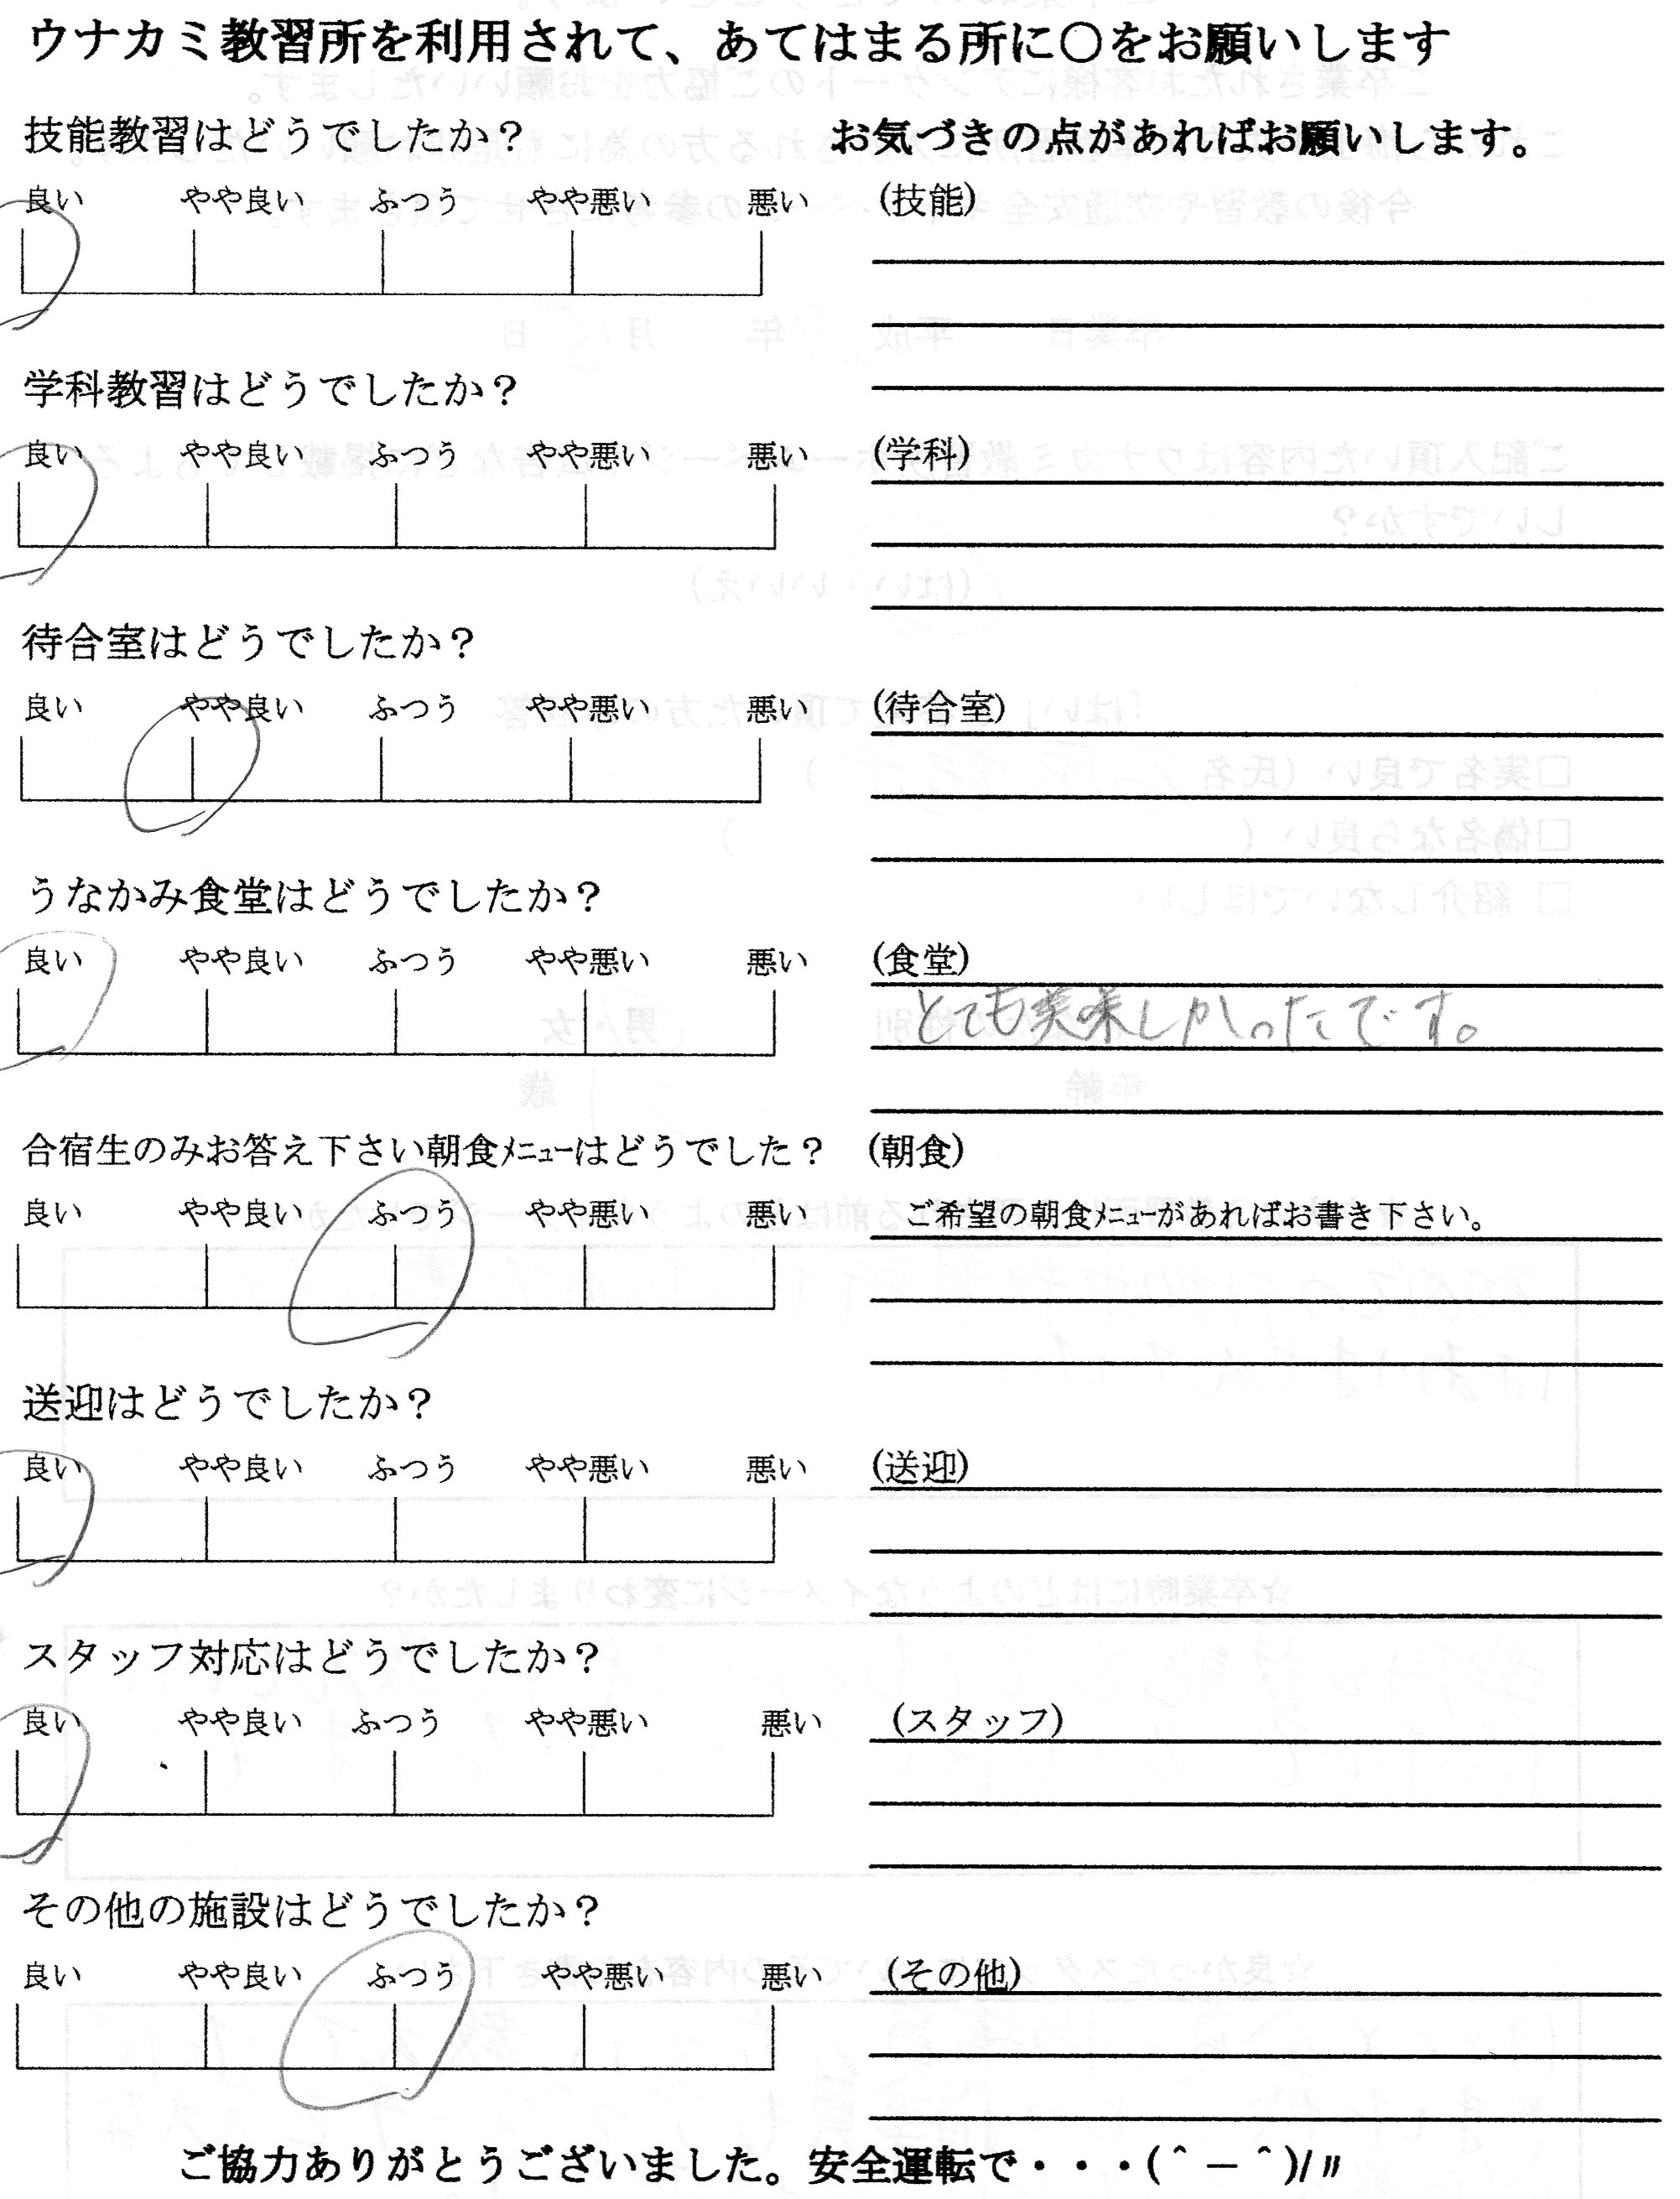 ウナカミ教習所を利用されて、あてはまる所に○をお願いします
技能教習はどうでしたか？
お気づきの点があればお願いします。
良い やや良い ふつう やや悪い 悪い
(技能)
学科教習はどうでしたか？
良い やや良い ふつう やや悪い 悪い
(学科)
待合室はどうでしたか？
良い やや良い ふつう やや悪い 悪い
(待合室)
うなかみ食堂はどうでしたか？
良い やや良い ふつう やや悪い 悪い
(食堂)
とても美味しかったです。
合宿生のみお答え下さい朝食ﾒﾆｭｰはどうでした？
(朝食)
良い やや良い ふつう やや悪い 悪い
ご希望の朝食ﾒﾆｭｰがあればお書き下さい。
送迎はどうでしたか？
良い やや良い ふつう やや悪い 悪い
(送迎)
スタッフ対応はどうでしたか？
良い やや良い ふつう やや悪い 悪い
(スタッフ)
その他の施設はどうでしたか？
良い やや良い ふつう やや悪い 悪い
(その他)
ご協力ありがとうございました。安全運転で・・・(＾－＾)/〃